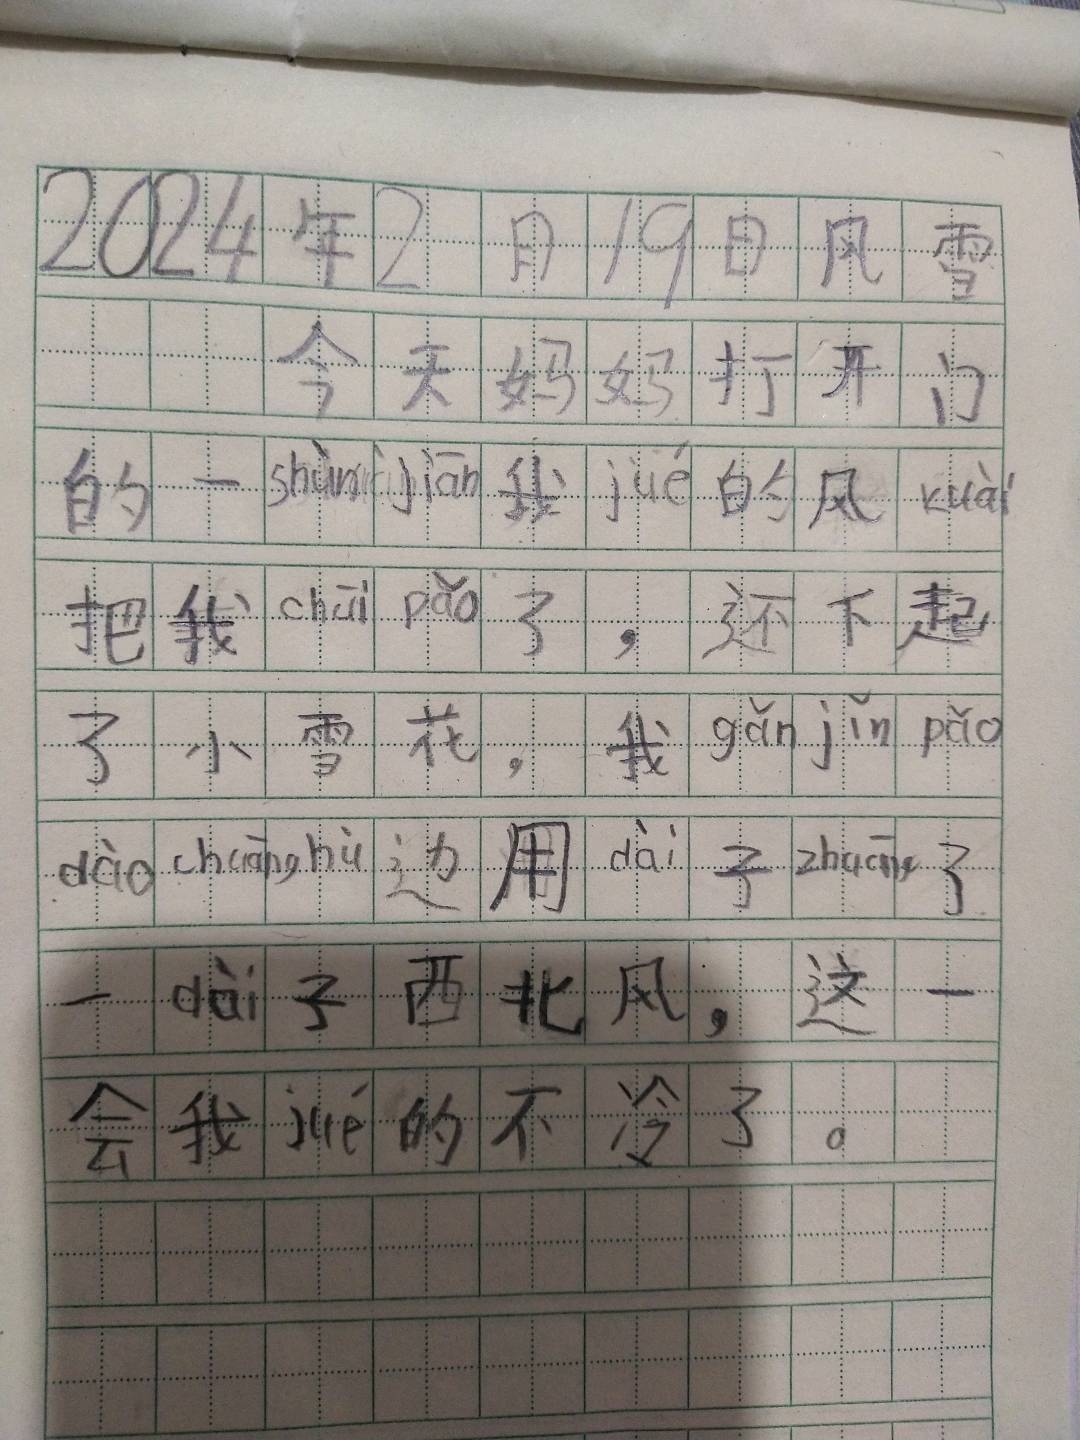 2024年2月19日风雪
今天妈妈打开门
的一shùn jiān我jué的风kuài
把我chūi pǎo了，还下起
了小雪花，我gǎn jǐn pǎo
dào chuāng hù边用dài子zhuāng了
一dài子西北风，这一
会我jué的不冷了。